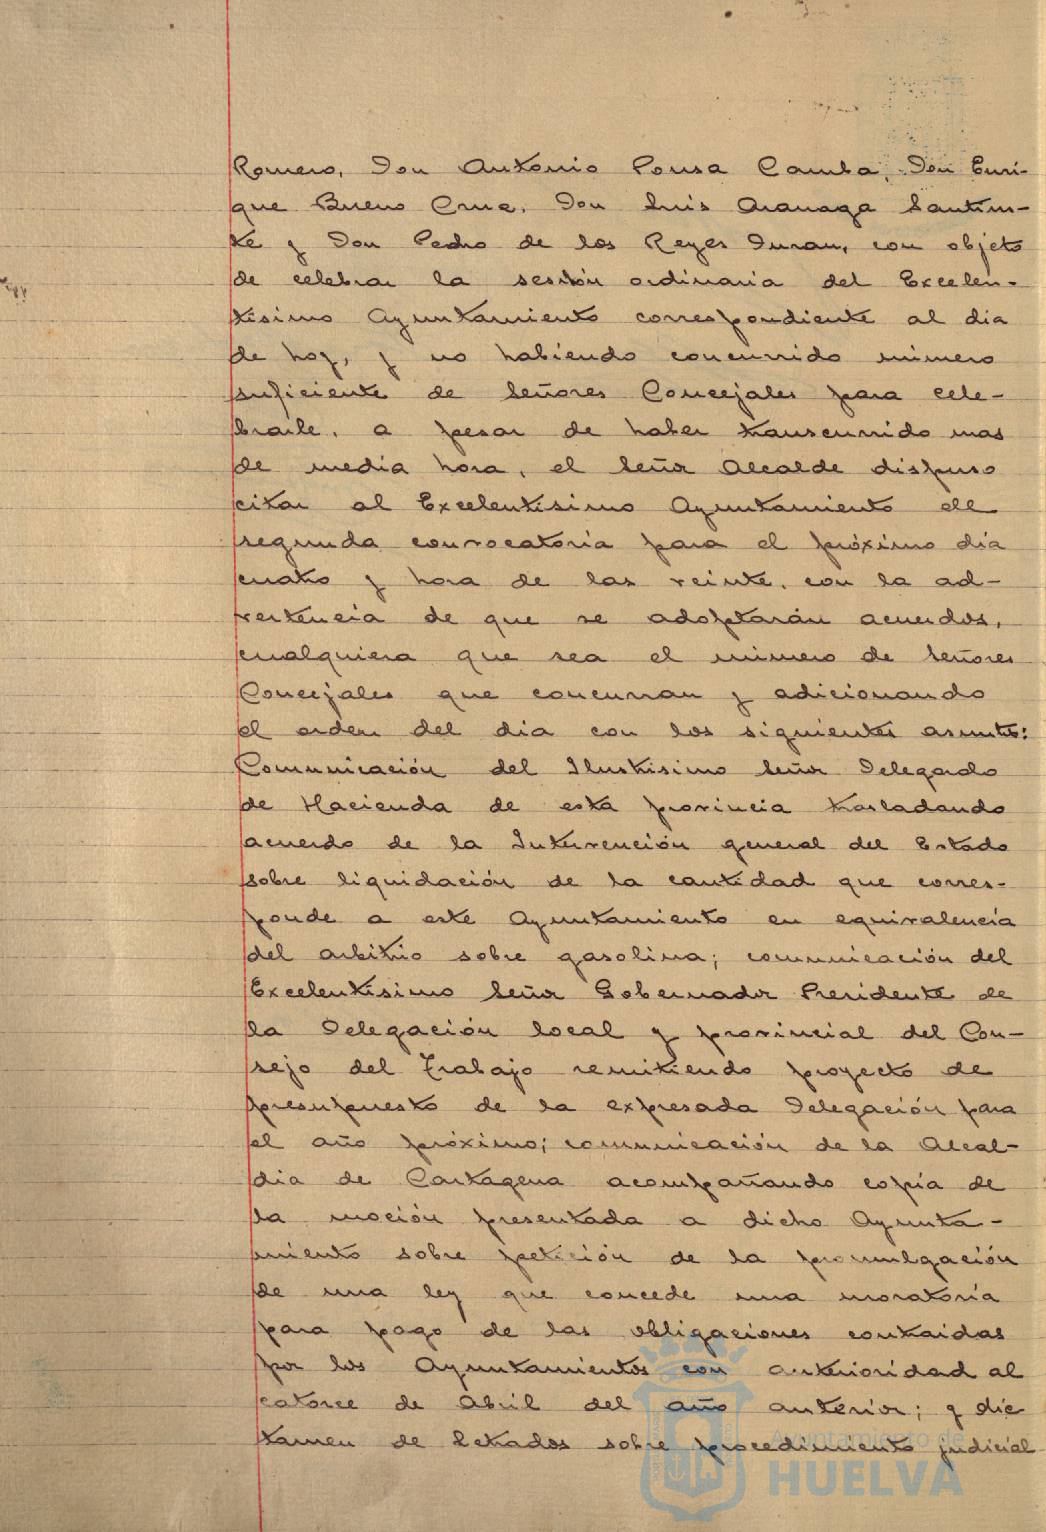 Romero, Don Antonio Pousa Camba, Don Enri-
que Bueno Cruz, Don Luis Aranaga Santim-
te y Don Pedro de los Reyes Duran, con objeto
de celebrar la sesión ordinaria del Excelen-
tísimo Ayuntamiento correspondiente al dia
de hoy, y no habiendo concurrido número
suficiente de Señores Concejales para cele-
brarle, a pesar de haber transcurrido mas
de media hora, el Señor Alcalde dispuso
citar al Excelentísimo Ayuntamiento de
segunda convocatoria para el próximo dia
cuatro y hora de las veinte, con la ad-
vertencia de que se adoptarán acuerdos,
cualquiera que sea el número de Señores
Concejales que concurran y adicionando
el orden del dia con los siguientes asuntos:
Comunicación del Ilustrisimo Señor Delegado
de Hacienda de esta provincia trasladando
acuerdo de la Intervención general del Estado
sobre liquidación de la cantidad que corres-
ponde a este Ayuntamiento en equivalencia
del arbitrio sobre gasolina; comunicación del
Excelentísimo Señor Gobernador Presidente de
la Delegación local y provincial del Con-
sejo del Trabajo remitiendo proyecto de
presupuesto de la expresada Delegación para
el año próximo; comunicación de la Alcal-
dia de Cartagena acompañando copia de
la moción presentada a dicho Ayunta-
miento sobre petición de la promulgación
de una ley que concede una moratoria
para pago de las obligaciones contraidas
por los Ayuntamientos con anterioridad al
catorce de Abril del año anterior; y dic
tamen de Letrados sobre procedimiento judicial
Ayuntamiento de
HUELVA